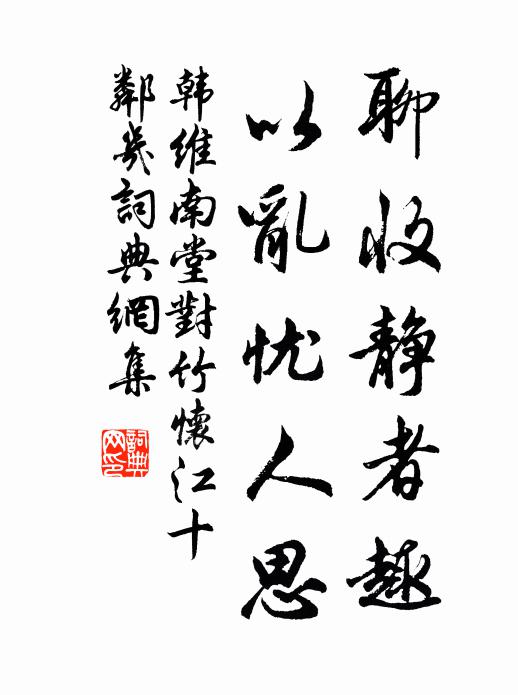 聊收静者趣
以亂忧人思
韩维南堂對竹懷江十
鄰幾詞典網集
詞典
网印